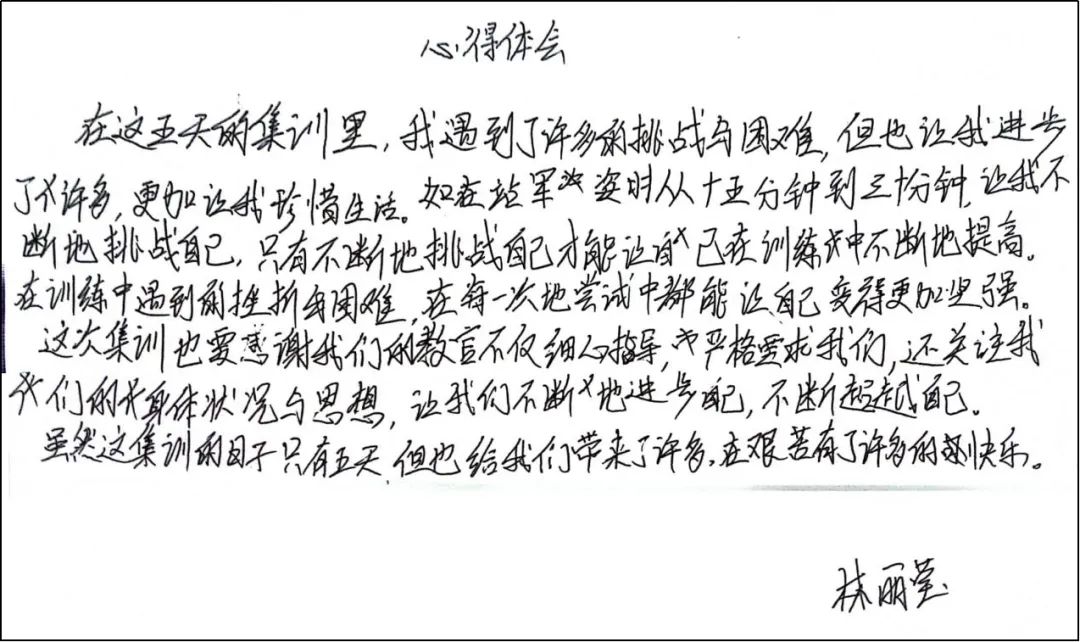 心得体会
在这五天的集训里,我遇到了许多的挑战与困难,但也让我进步
了许多,更加让我珍惜生活。如在站军姿时从十五分钟到三十分钟,让我不
断地挑战自己,只有不断地挑战自己才能让自己在训练中不断地提高。
在训练中遇到的挫折与困难,在每一次地尝试中都能让自己变得更加坚强。
这次集训也要感谢我们的教官不仅细心指导,严格要求我们,还关注我
们的身体状况与思想,让我们不断地进步自己,不断超越自己。
虽然这集训的日子只有五天,但也给我们带来了许多,在艰苦有了许多的快乐。
林丽莹